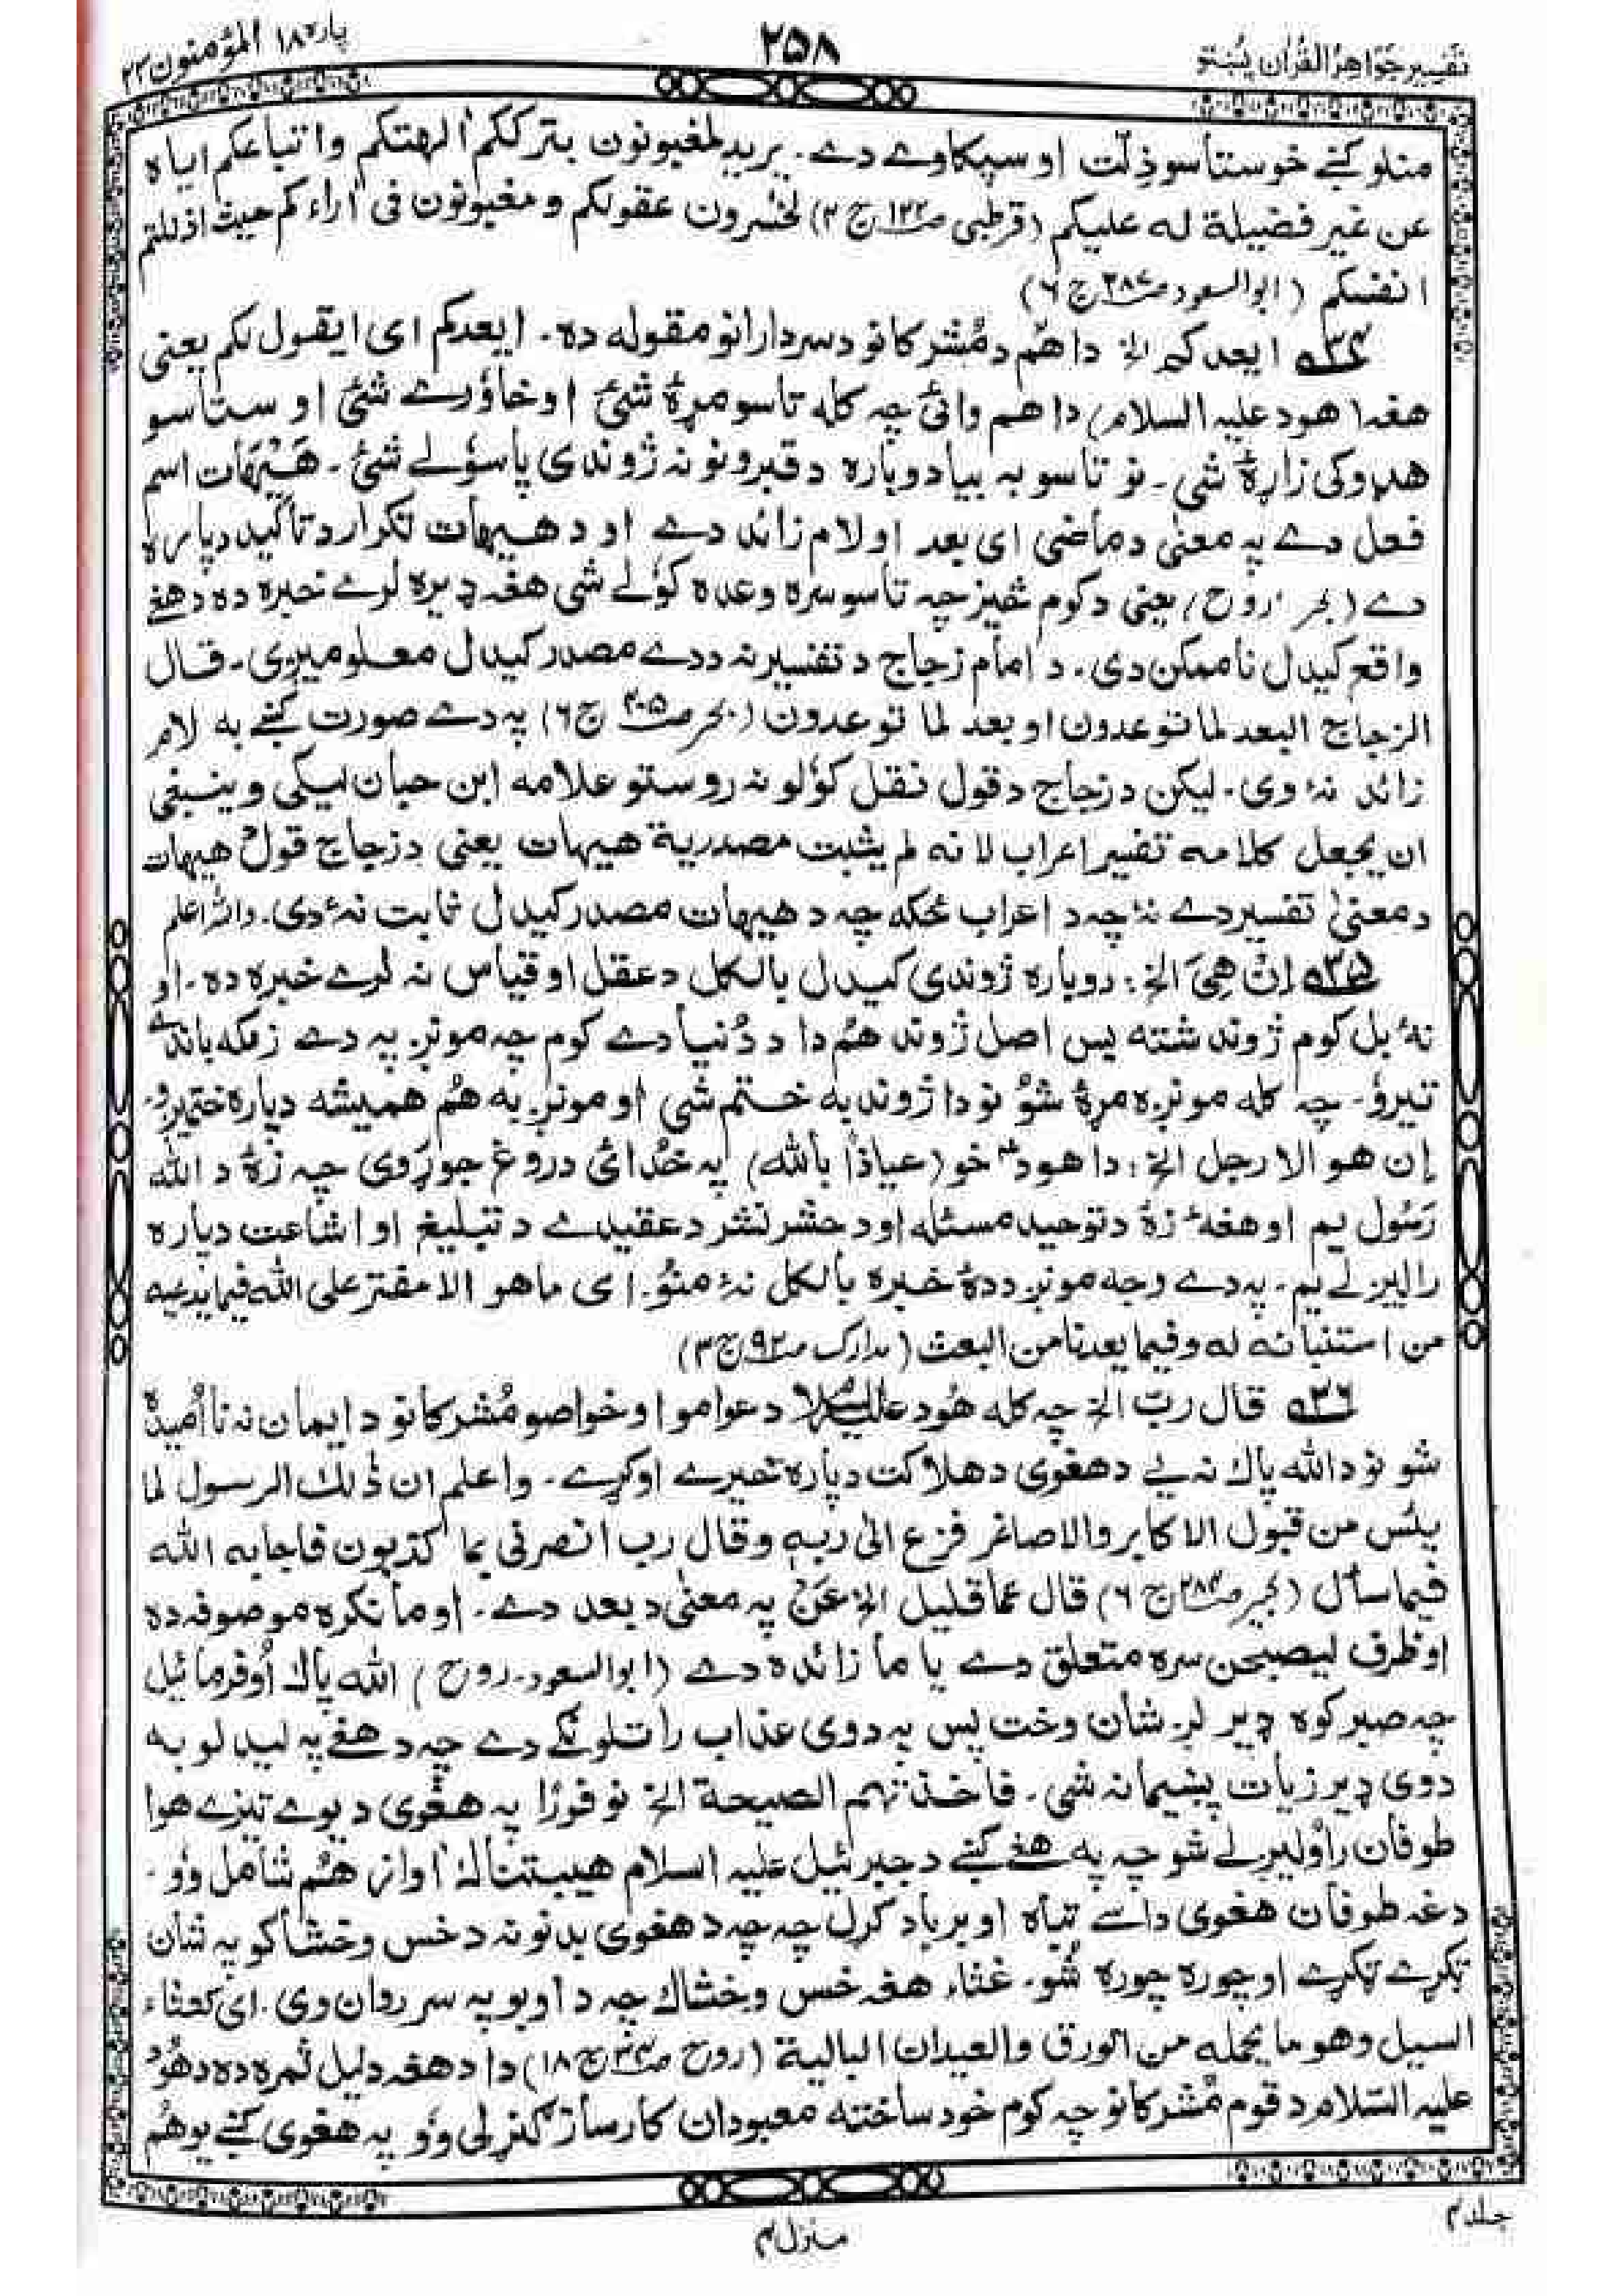 تفسیر جواهر القرآن پښتو
۲۵۸
پاره ۱۸ المؤمنون ۲۳
منلو کښے خو ستاسو ذِلّت او سپکاوے دے۔ یرید لمغبونون بترککم اٰلهتکم واتباعکم ایاه
عن غیر فضیلة له علیکم (قرطبی صـ۱۲۲ ج ۲) لخٰسرون عقولکم و مغبونون فی اٰراءکم حیث اذللتم
انفسکم (ابوالسعود صـ ج۶)
۳۴ ایعدکم الخ داهم د مُشرکانو د سردارانو مقوله ده۔ ایعدکم ای ایقول لکم یعنی
هغه (هود علیه السلام) دا هم وائی چه کله تاسو مړهٔ شئ او خاؤرے شئ او ستاسو
هډوکی زاړهٔ شی۔ نو تاسو به بیا دوباره د قبرونو نه ژوندی پاسؤلے شئ۔ هَیْهَات اسم
فعل دے په معنیٰ د ماضی ای بعد او لام زائد دے او د هیهات تکرار د تاکید دپاره
دے (بحر، روح) یعنی د کوم څیز چه تاسو سره وعده کؤلے شی هغه ډیره لرے خبره ده د هغے
واقع کیدل ناممکن دی۔ د امام زجاج د تفسیر نه د دے مصدر کیدل معلومیږی۔ قال
الزجاج البعد لما توعدون او بعد لما توعدون (بحر صـ۴۰۵ ج۶) په دے صورت کښے به لام
زائد نهٔ وی۔ لیکن د زجاج د قول نقل کؤلو نه روستو علامه ابن حبان لیکی وینبغی
ان یجعل کلامه تفسیر اعراب لانه لم یثبت مصدریة هیهات یعنی د زجاج قول هیهات
د معنیٰ تفسیر دے نهٔ چه د اعراب ځکه چه د هیهات مصدر کیدل ثابت نهٔ دی۔ والله اعلم
۳۵ اِنْ هِیَ الخ: دوباره ژوندی کیدل بالکل د عقل او قیاس نه لرے خبره ده۔ او
نهٔ بل کوم ژوند شته پس اصل ژوند هُم دا د دُنیا دے کوم چه مونږ په دے زمکه باندے
تیروؤ۔ چه کله مونږه مړهٔ شوُ نو دا ژوند به ختم شی او مونږ به هُم همیشه دپاره ختمیږو۔
اِن هو الا رجل الخ: دا هودؑ خو (عیاذاً بالله) په خُدائی دروغ جوړَوی چه زهٔ د الله
رَسُول یم او هغهٔ زهٔ د توحید مسئله او د حشر نشر د عقیدے د تبلیغ او اشاعت دپاره
رالیږلے یم۔ په دے وجه مونږ د دهٔ خبره بالکل نهٔ منوُ۔ ای ماهو الا مفتر علی الله فیما یدعیه
من استنبائه له وفیما یعدنا من البعث (مدارک صـ۹۲ ج۳)
۳۶ قال ربّ الخ چه کله هُود علیه السلام د عوامو او خواصو مُشرکانو د ایمان نه نا اُمیدهٔ
شو نو د الله پاک نه یے د هغوی د هلاکت دپاره خیرے اوکړے۔ واعلم ان ذٰلک الرسول لما
یئس من قبول الاکابر والاصاغر فزع الیٰ ربهٖ وقال رب انصرنی بما کذبون فاجابه الله
فیما سأل (کبیر صـ ج۶) قال عما قلیل الخ عَنْ په معنیٰ د بعد دے۔ او ما نکره موصوفه ده
او ظرف لیصبحن سره متعلق دے یا ما زائده دے (ابوالسعود۔ روح) الله پاک اُوفرمائیل
چه صبر کوه ډیر لږ شان وخت پس په دوی عذاب راتلونکے دے چه د هغے په لیدلو به
دوی ډیر زیات پښیمانه شی۔ فاخذتهم الصیحة الخ نو فورًا په هغوی د یوے تیزے هوا
طوفان راؤلیږلے شو چه په هغے کښے د جبرئیل علیه السلام هیبتناک اٰواز هُم شامل وؤ۔
دغه طوفان هغوی داسے تباه او برباد کړل چه چه د هغوی بدنونه د خس و خشاکو په شان
ټکړے ټکړے او چوره چوره شو۔ غثاء هغه خس و خشاک چه د اوبو په سر روان وی۔ ای کغثاء
السیل وهو ما یحمله من الورق والعیدان البالیة (روح صـ ج۱۸) دا د هغه دلیل ثمره ده د هُودؑ
علیه السّلام د قوم مُشرکانو چه کوم خود ساخته معبودان کارساز ګنړلی وؤ په هغوی کښے یو هُم
جلد ۳
منزل ۴